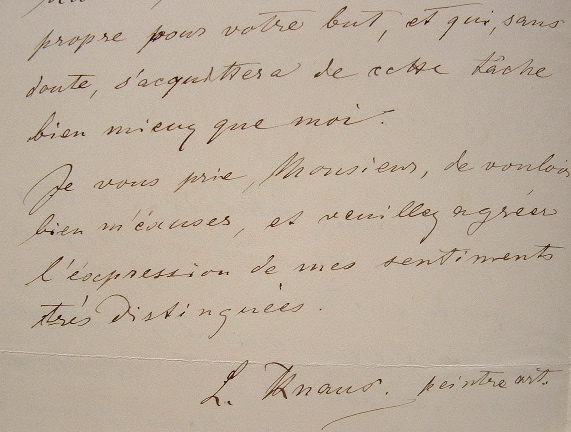 propre pour votre but, et qui, sans
doute, s'acquittera de cette tâche
bien mieux que moi.
Je vous prie, Monsieur, de vouloir
bien m'éxcuser, et veuillez agréer
l'éxpression de mes sentiments
trés distinguées.
L. Knaus. peintre art.